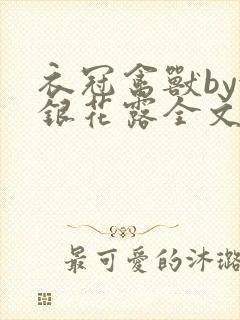 衣冠禽獸by
銀花露全文
最可愛的沐璐